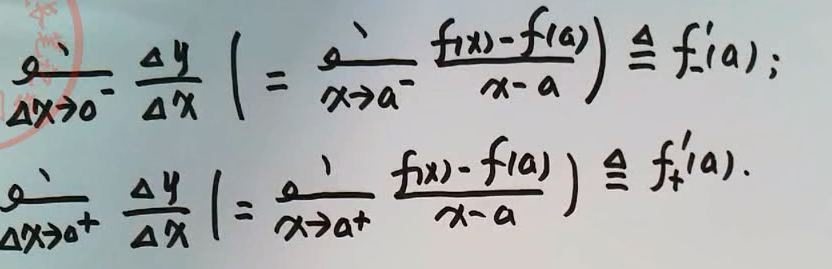 lim Δx→0⁻ Δy/Δx (= lim x→a⁻ (f(x)-f(a))/(x-a)) ≜ f₋′(a);
lim Δx→0⁺ Δy/Δx (= lim x→a⁺ (f(x)-f(a))/(x-a)) ≜ f₊′(a).